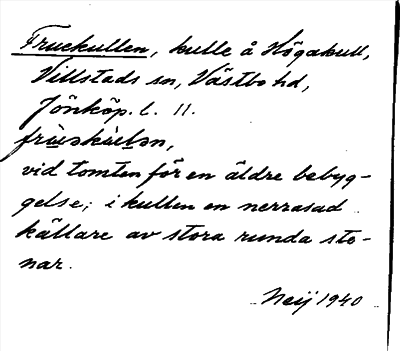 Fruekullen, kulle å Högakull,
Villstads sn, Västbo hd,
Jönköp. l. 11.
vid tomten för en äldre bebyg-
gelse; i kullen en nerrasad
källare av stora runda ste-
nar.
Neij 1940